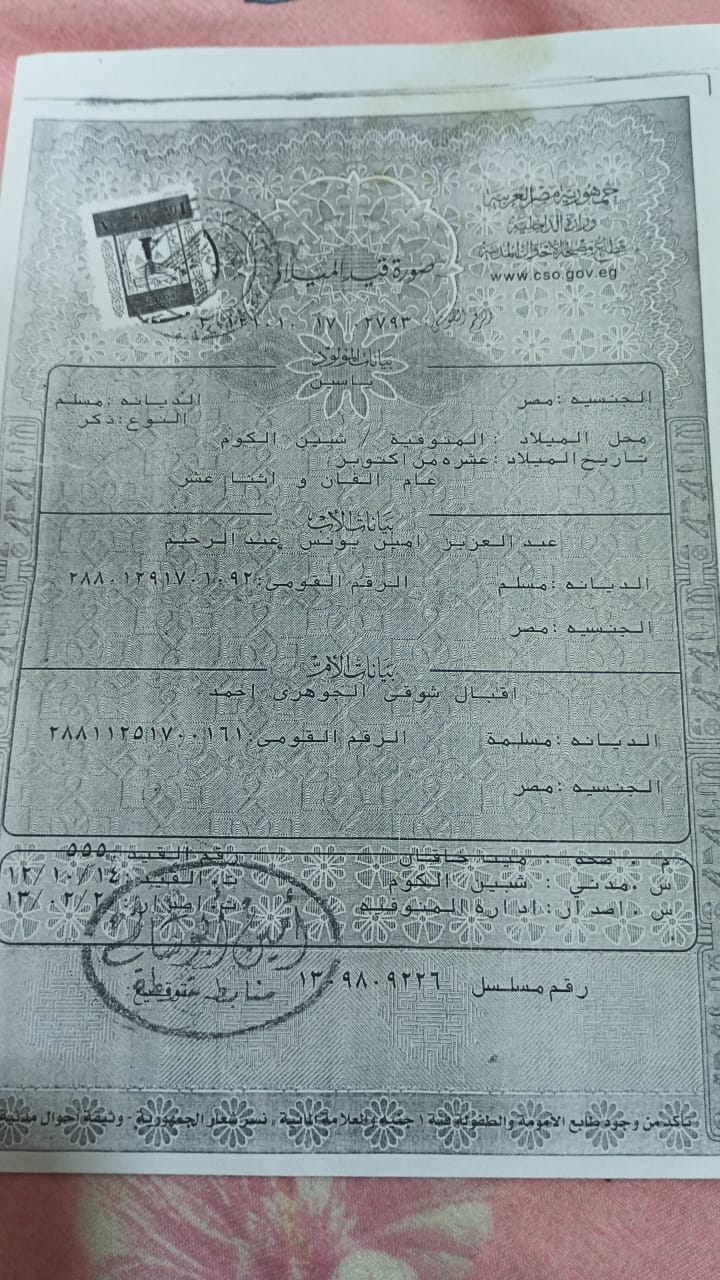 جمهورية مصر العربية
وزارة الداخلية
قطاع مصلحة الأحوال المدنية
www.cso.gov.eg
صورة قيد الميلاد
الرقم القومي ١٧ ٠٢٧٩٣
بيانات المولود
ياسين
الجنسيه : مصر الديانه : مسلم
النوع : ذكر
محل الميلاد : المنوفية / شبين الكوم
تاريخ الميلاد : عشره من اكتوبر
عام الفان و اثنا عشر
بيانات الأب
عبد العزيز امين يونس عبد الرحيم
الديانه : مسلم الرقم القومى : ٢٨٨٠١٢٩١٧٠١٠٩٢
الجنسيه : مصر
بيانات الأم
اقبال شوقى الجوهرى احمد
الديانه : مسلمة الرقم القومى : ٢٨٨١١٢٥١٧٠٠١٦١
الجنسيه : مصر
م . صحه : ميت خاقان رقم القيد : ٥٥٥
س . مدني : شبين الكوم ت . القيد : ١٢/١٠/١٤
س . اصدار : ادارة المنوفيه ت . اصدار :
رقم مسلسل ١٣٠٩٨٠٩٢٢٦
تأكد من وجود طابع الأمومة والطفولة فئة ١ جنيه والعلامة المائية « نسر شعار الجمهورية - وثيقة أحوال مدنية